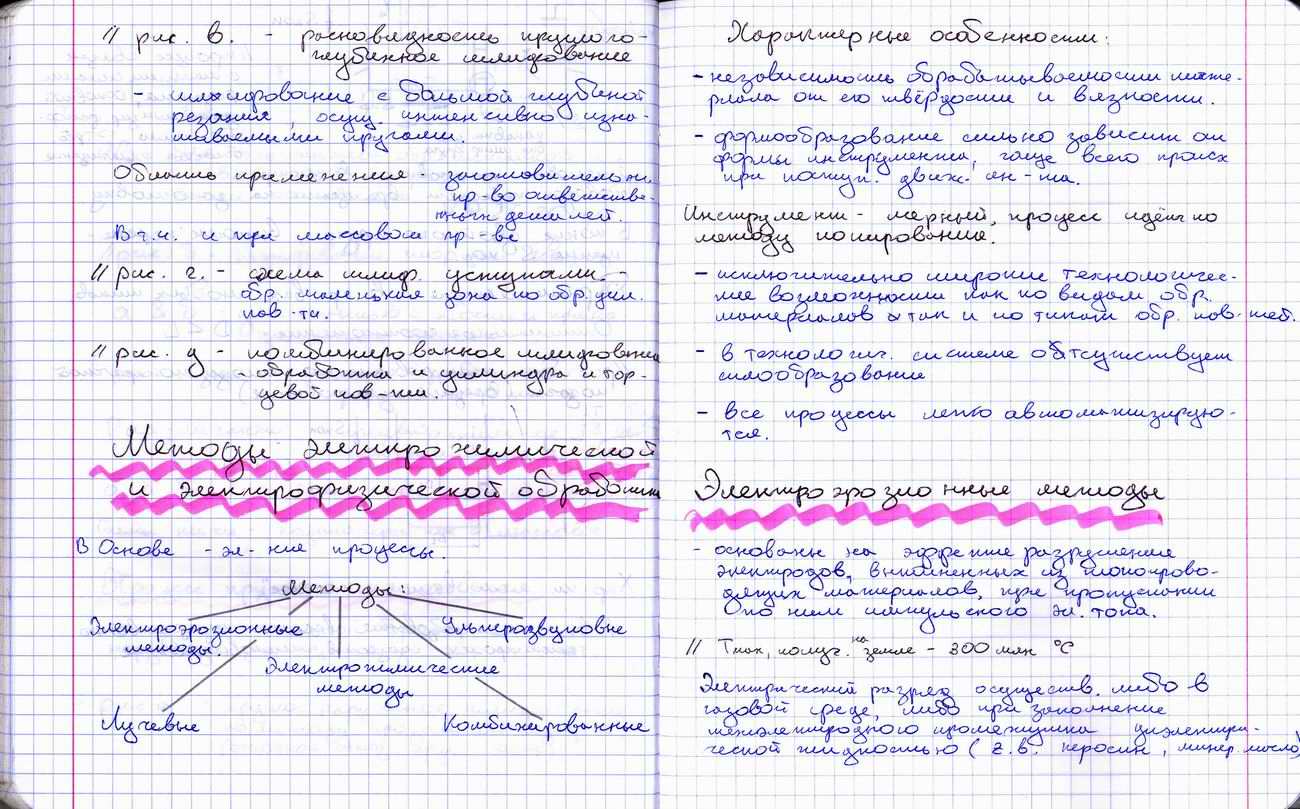 // рис. в. - разновидность круглого-
глубинное шлифование
- шлифование с большой глубиной
резания, осущ. интенсивно изна-
шиваемыми кругами.
Область применения - заготовительн.
пр-во ответстве-
нных деталей.
В т.ч. и при массовом пр-ве
// рис. г. - схема шлиф. уступами. -
обр. маленькая зона по обр. цил.
пов-ти.
// рис. д - комбинированное шлифование
- обработка и цилиндра и тор-
цевой пов-ти.
Методы электрохимической
и электрофизической обработки
В Основе - эл-кие процессы.
Методы:
Электроэрозионные
методы.
Ультразвуковые
Электрохимические
методы
Лучевые
Комбинированные
Характерные особенности:
- независимость обрабатываемости мате-
риала от его твёрдости и вязкости.
- формообразование сильно зависит от
формы инструмента, чаще всего происх
при поступ. движ. ин-та.
Инструмент - мерный, процесс идёт по
методу копирования.
- исключительно широкие технологичес-
кие возможности как по видам обр.
материалов так и по типам обр. пов-тей.
- в технологич. системе отсутствует
силообразование
- все процессы легко автоматизирую-
тся.
Электроэрозионные методы
- основаны на эффекте разрушения
электродов, выполненных из токопрово-
дящих материалов, при пропускании
по ним импульсного эл. тока.
// Тmax, получ. на земле - 300 млн °С
Электрический разряд осуществ. либо в
газовой среде, либо при заполнение
межэлектродного промежутка диэлектри-
ческой жидкостью (г.в. керосин, минер. масло)